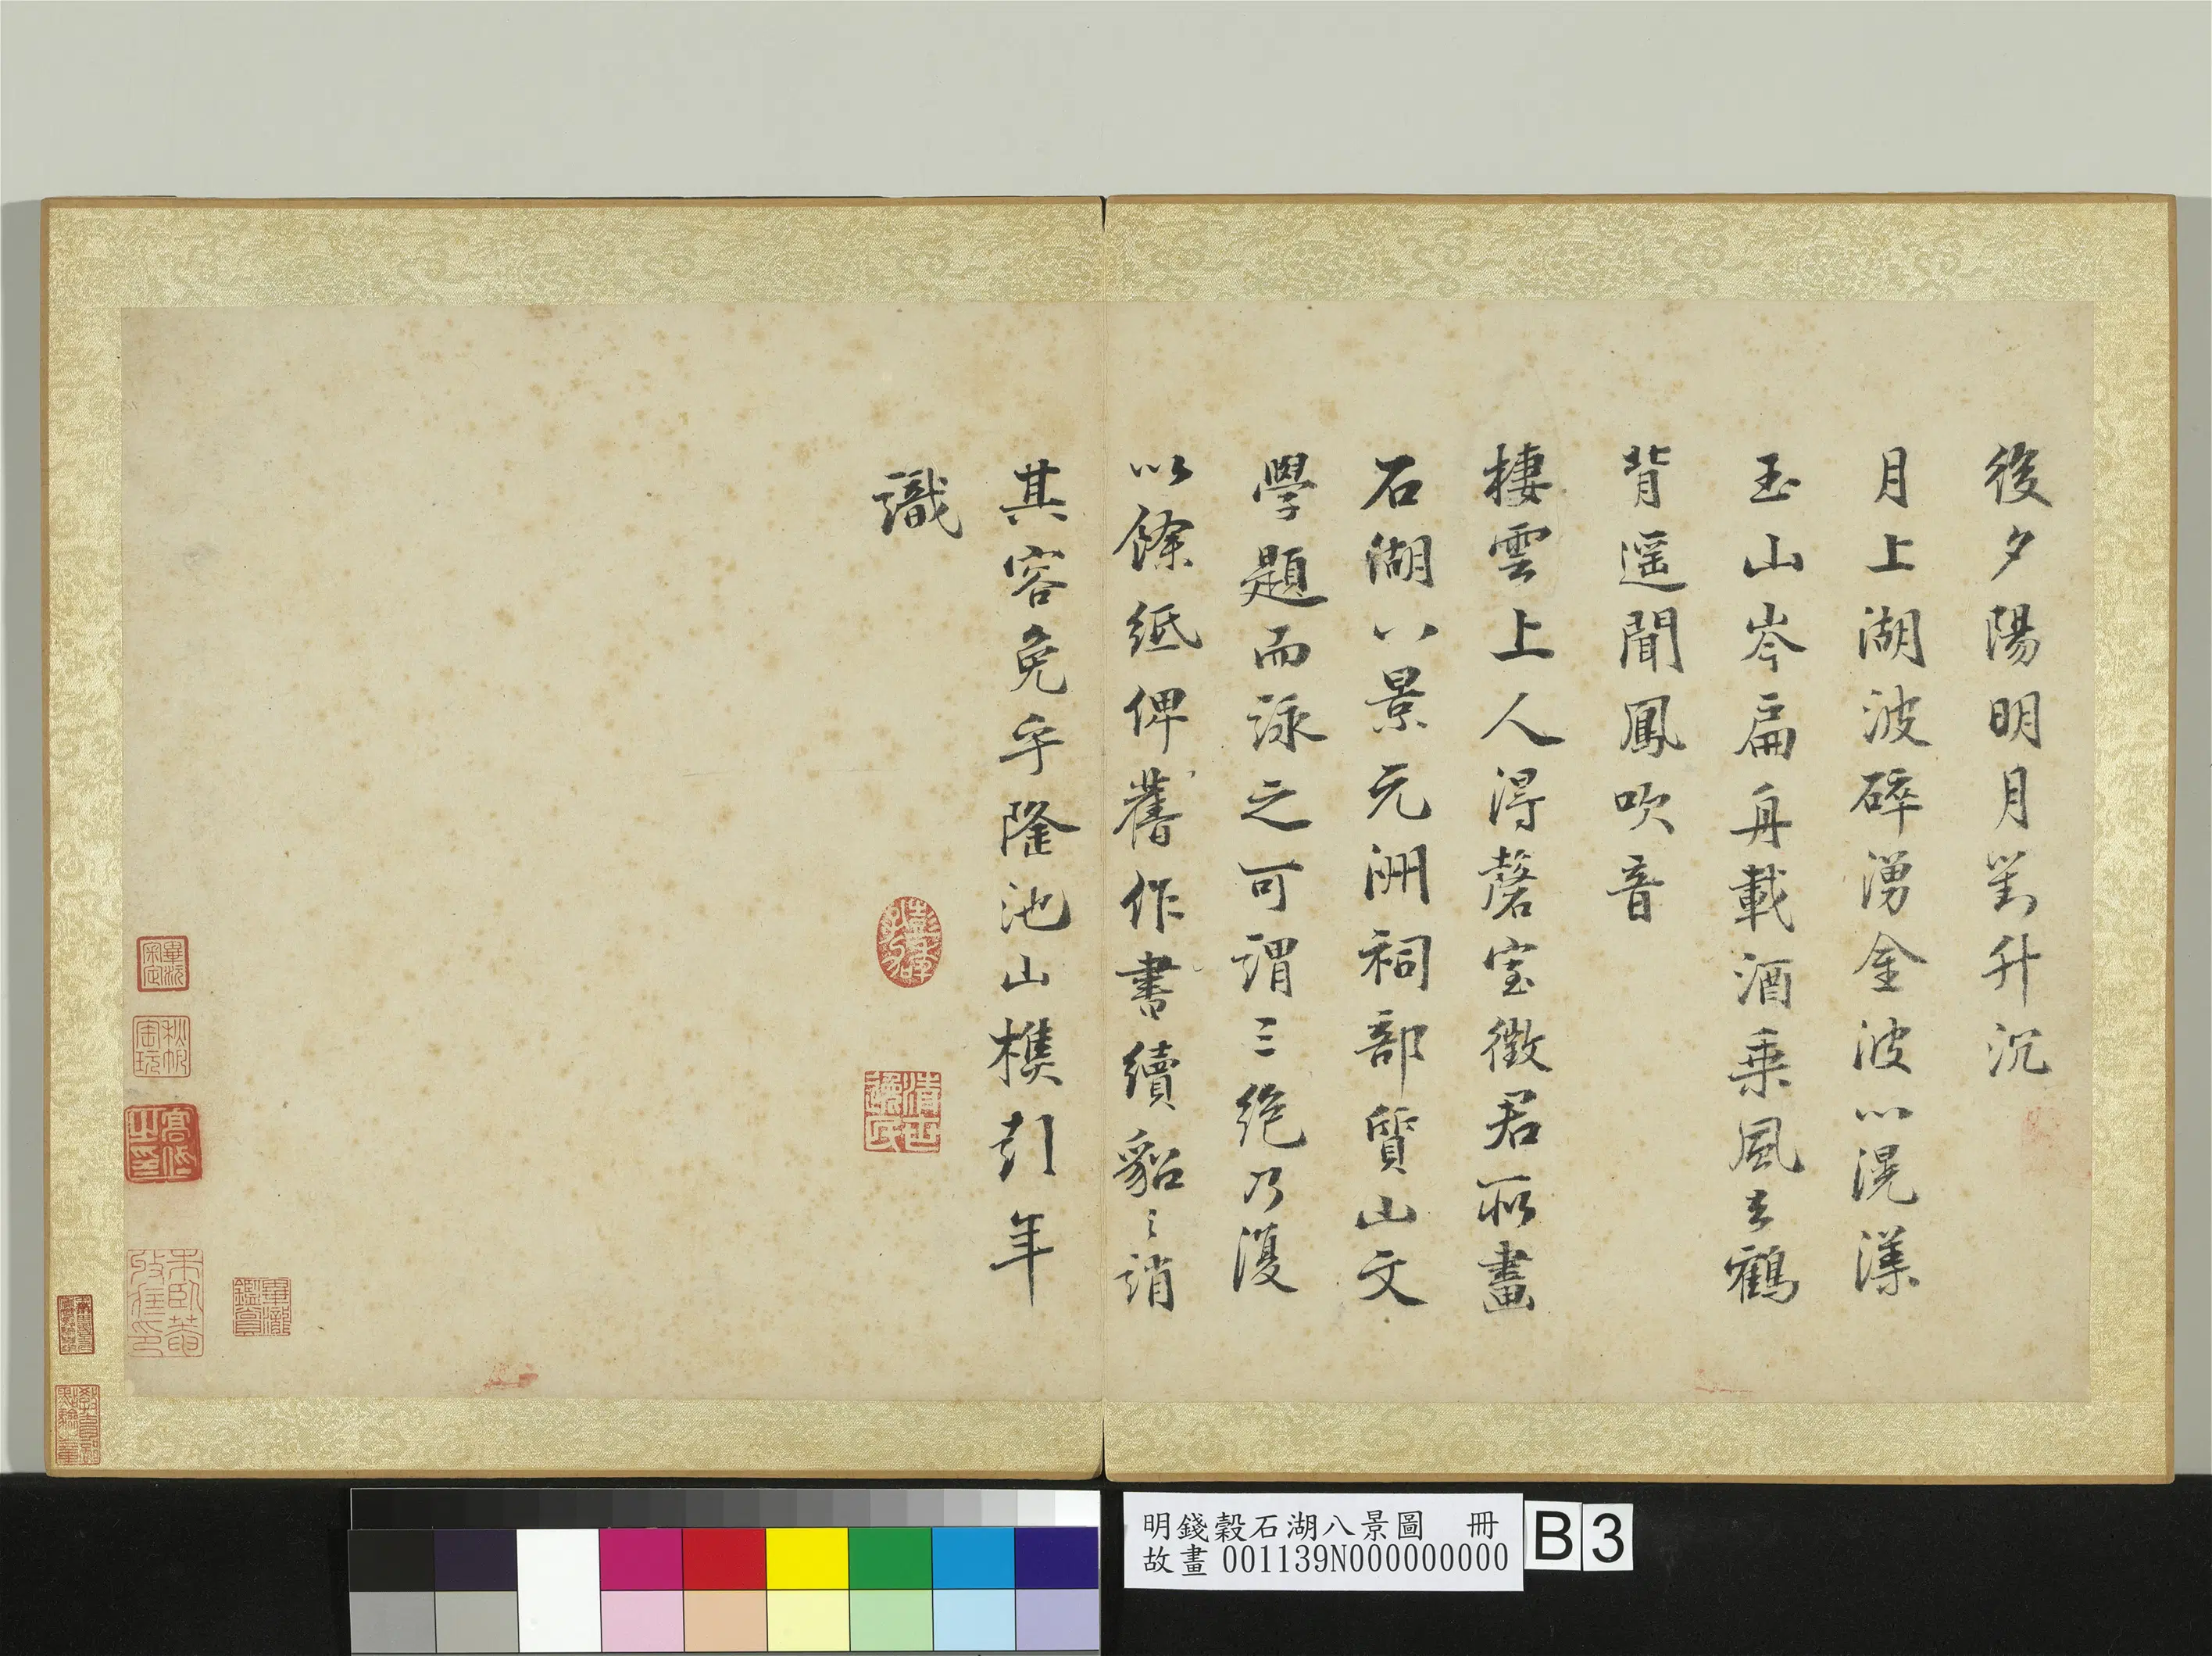 後夕陽明月對升沉
月上湖波碎湧金波心滉漾
玉山岑扁舟載酒乘風去鶴
背遥聞鳳吹音
棲雲上人得磬室徵君所畫
石湖八景元洲祠部質山文
學題而詠之可謂三絶乃復
以餘紙俾舊作書續貂之誚
其容免乎隆池山樵彭年
識
清世
逸民
畢沅
審定
秋帆
宝玩
畢瀧
鑑賞
明錢穀石湖八景圖 冊
故畫 001139N000000000
B 3